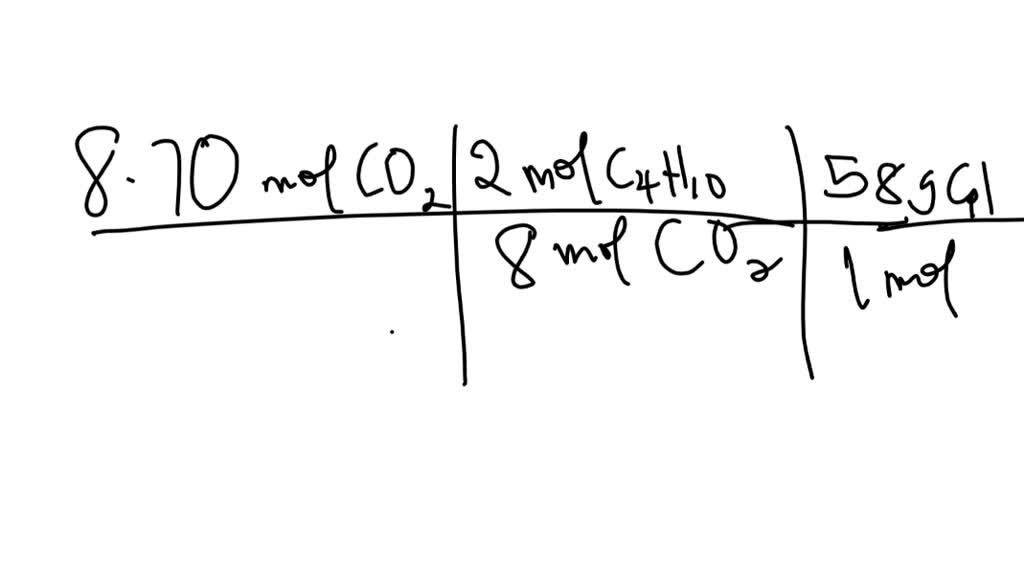 8.70 mol CO2 2 mol C4H10 58g
8 mol CO2 1 mol